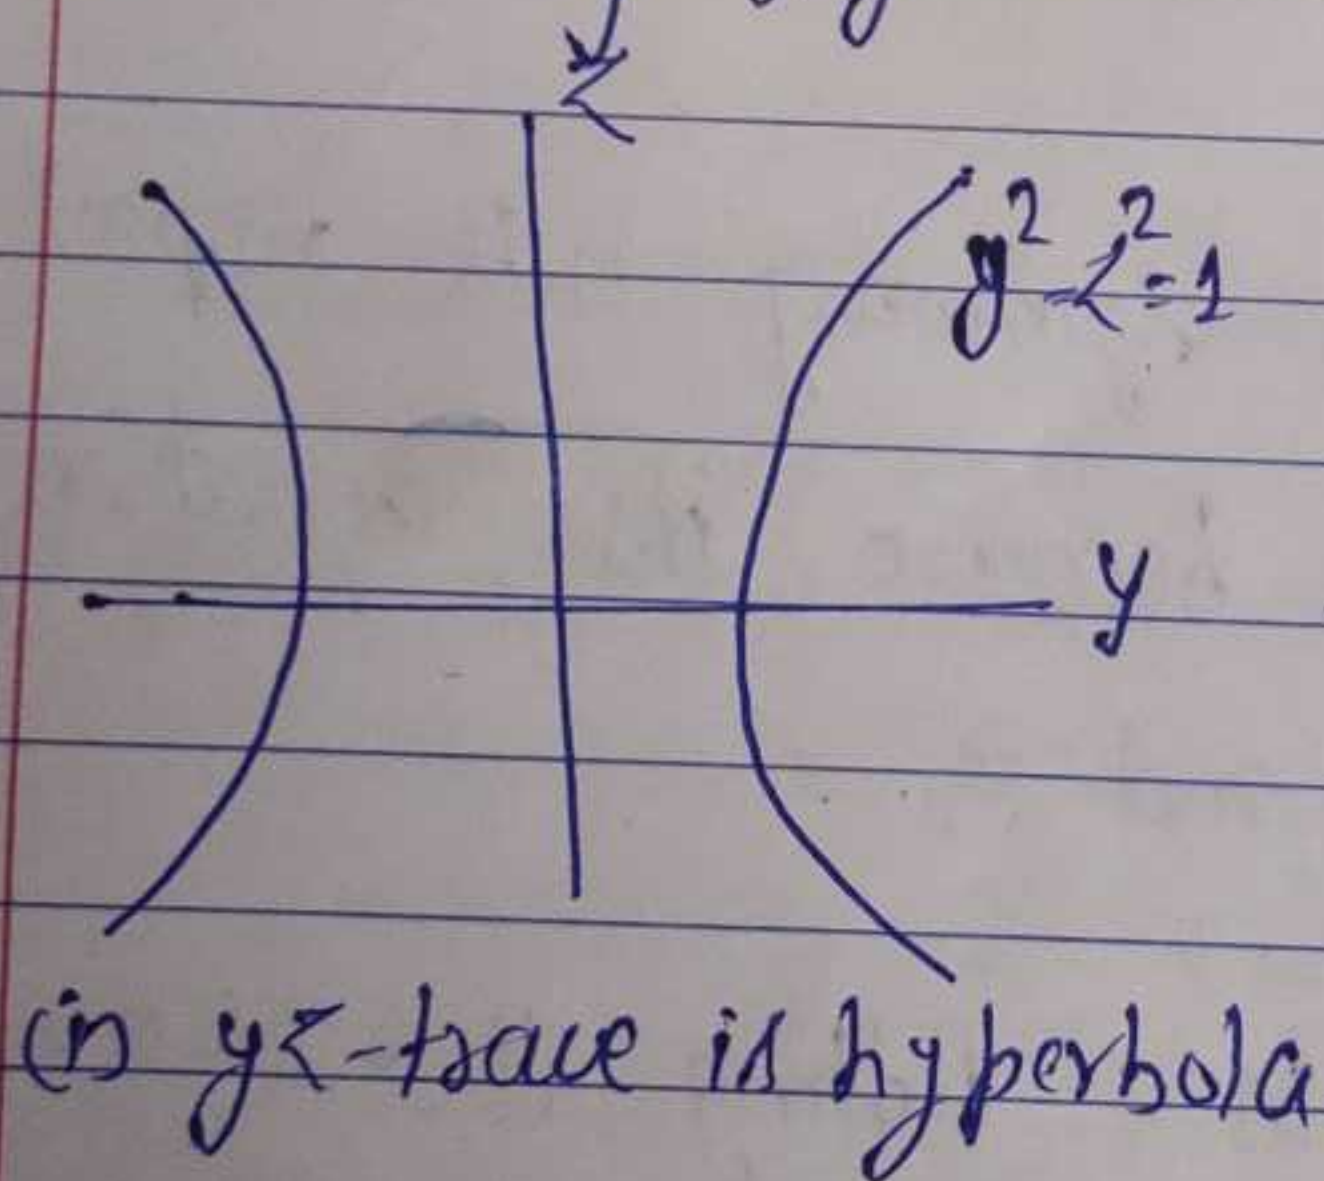 z
y² - z² = 1
y
in yz-trace is hyperbola